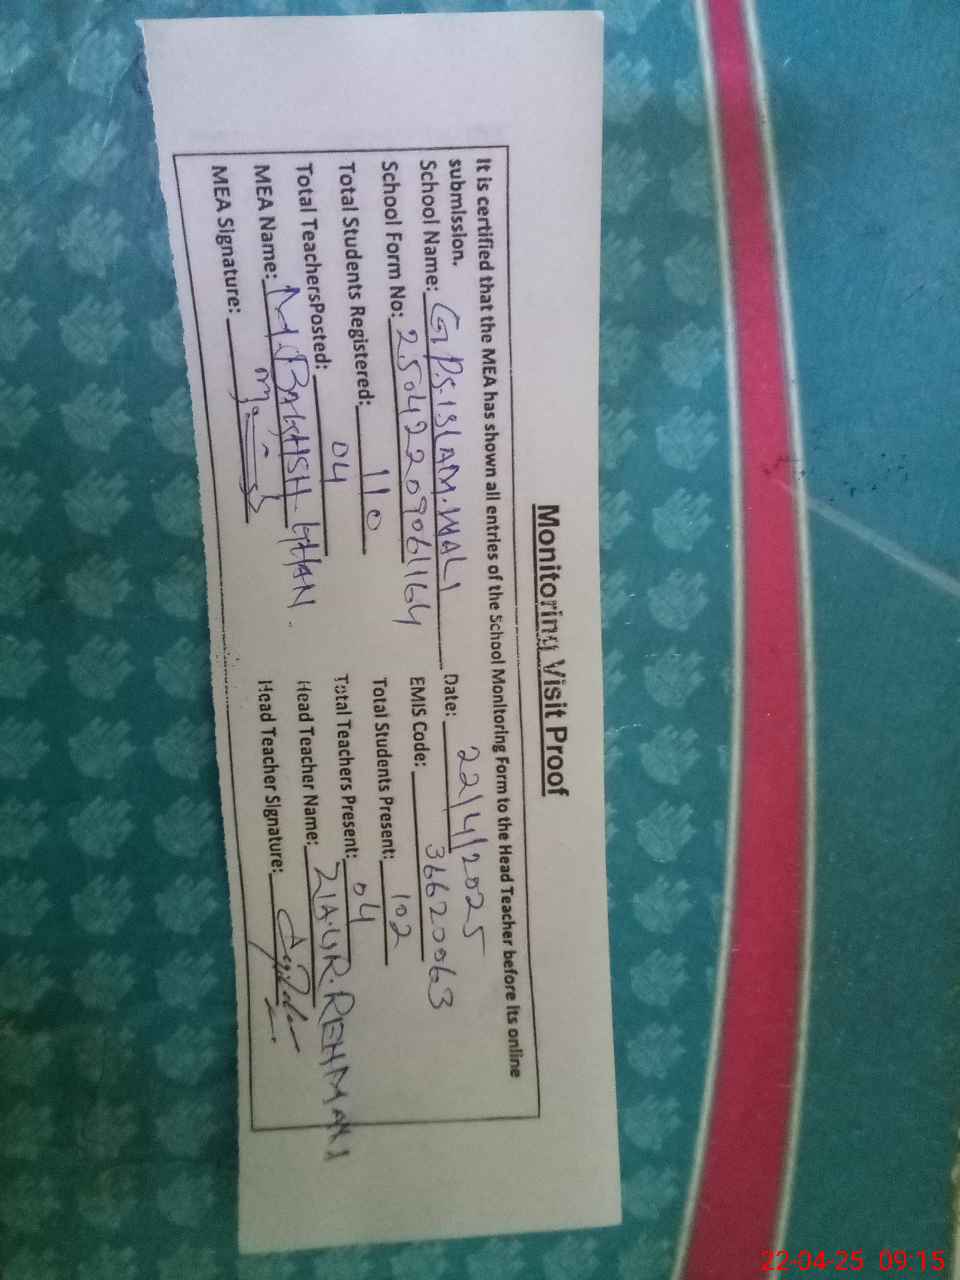 Monitoring Visit Proof
It is certified that the MEA has shown all entries of the School Monitoring Form to the Head Teacher before its online
submission.
School Name: GPS.ISLAM.WALI Date: 22/4/2025
School Form No: 25042209061164 EMIS Code: 36620063
Total Students Registered: 110 Total Students Present: 102
Total TeachersPosted: 04 Total Teachers Present: 04
MEA Name: M.BAKHSH.KHAN. Head Teacher Name: ZIA.UR.REHMAN
MEA Signature: Head Teacher Signature:
22-04-25 09:15